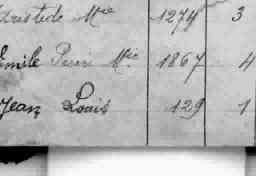 Aristide Mie 1274 3
Emile Perin Mic 1867 4
Jean Louis 129 1